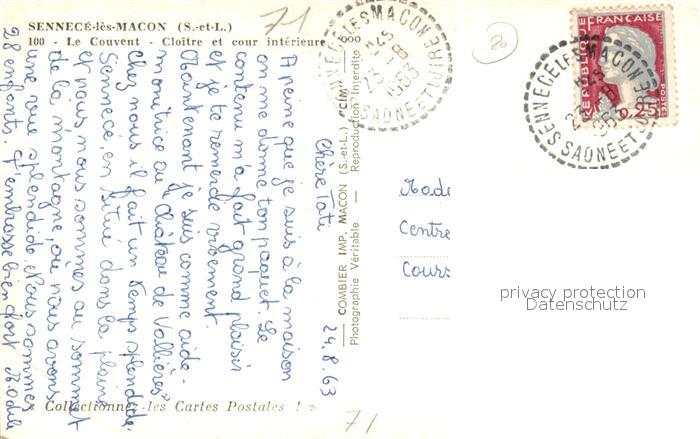 SENNECÉ-lès-MACON (S.-et-L.)
100 - Le Couvent - Cloître et cour intérieure
71
24.8.63
Chère Tati
A peine que je suis à la maison
on me donne ton paquet. Le
contenu m'a fait grand plaisir
et je te remercie vivement.
Maintenant je suis comme aide-
monitrice au "Château de Vallières"
chez nous il fait un temps splendide.
Sennecé, en situé dans la plaine
et nous nous sommes au sommet
de la montagne, où nous avons
une vue splendide. Nous sommes
28 enfants. J'embrasse bien fort
« Collectionnez les Cartes Postales ! »
71
COMBIER IMP. MACON (S.-et-L.) "CIM"
Photographie Véritable — Reproduction Interdite
SENNECE LES MACON
SAONE ET LOIRE
1963
20
REPUBLIQUE FRANÇAISE
0,25
POSTES
SENNECE LES MACON
SAONE ET LOIRE
Centre
Cours
privacy protection
Datenschutz